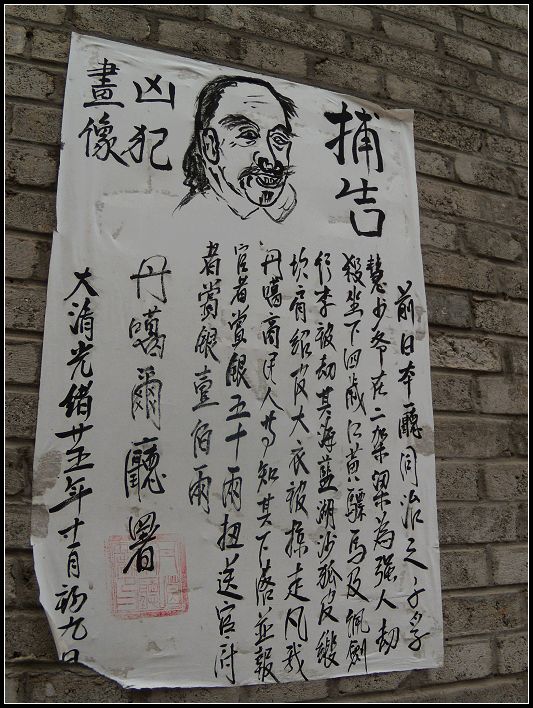 捕告
凶犯
畫像
前日本廳同治之子
慧少爷在二架梁为强人劫
殺坐下四歲红黄骠馬及佩劍
行李被劫其海藍湖沙狐皮
坎肩紹皮大衣被掠走凡我
丹噶商民人等知其下落並報
官者賞銀五十兩扭送官府
者賞銀壹佰兩
丹噶爾廳署
大清光緒廿五年十月初九日